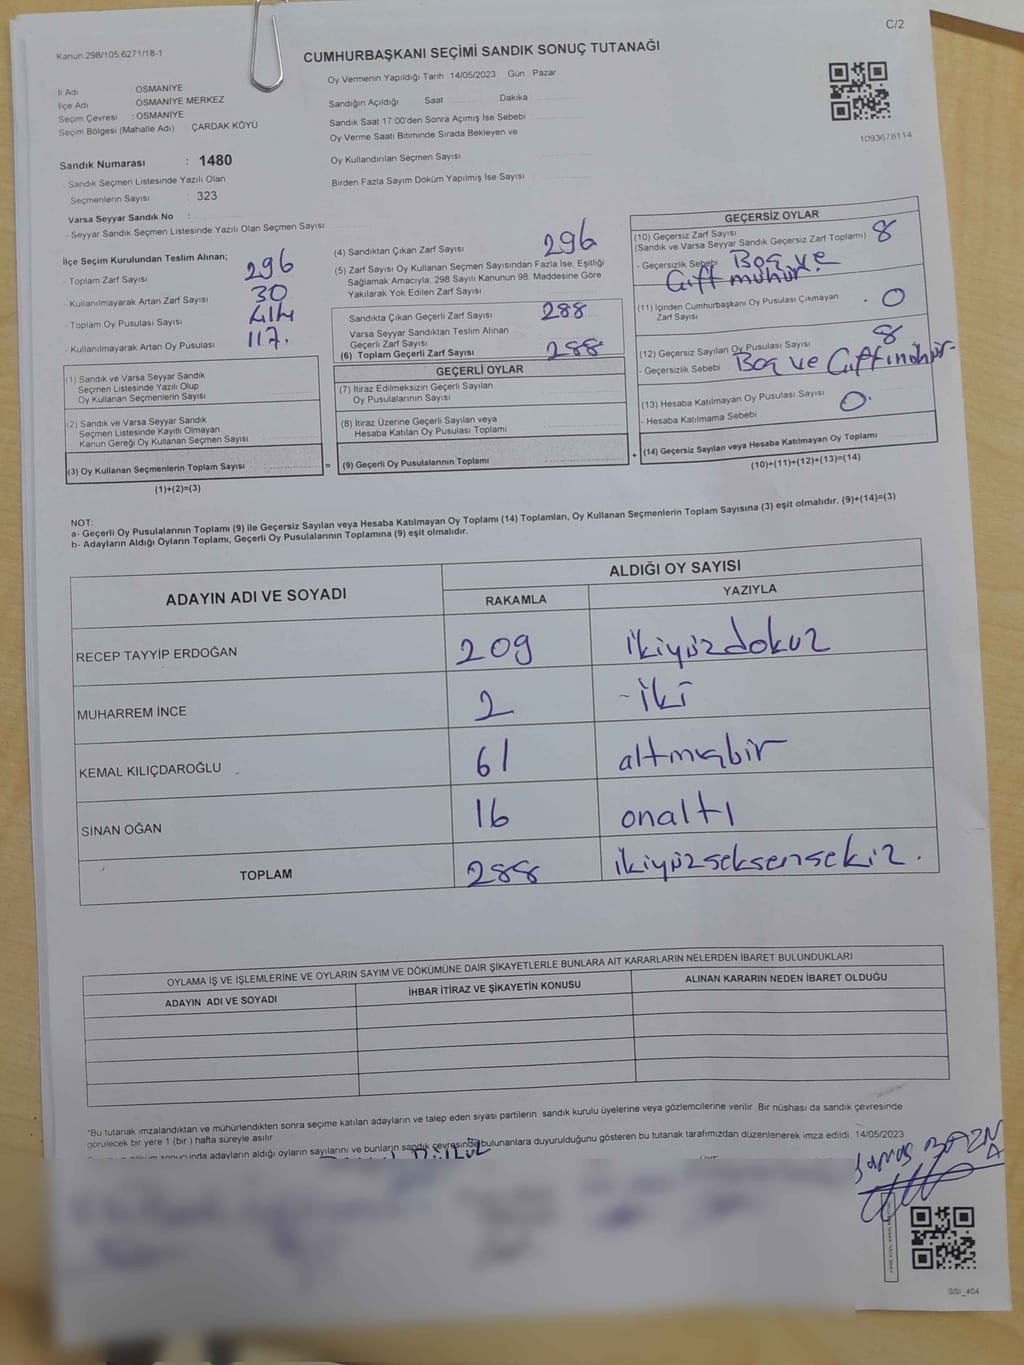 C/2
Kanun:298/105.6271/18-1
CUMHURBAŞKANI SEÇİMİ SANDIK SONUÇ TUTANAĞI
İl Adı : OSMANİYE
İlçe Adı : OSMANİYE MERKEZ
Seçim Çevresi : OSMANİYE
Seçim Bölgesi (Mahalle Adı) ÇARDAK KÖYÜ
Sandık Numarası : 1480
Sandık Seçmen Listesinde Yazılı Olan
Seçmenlerin Sayısı : 323
Varsa Seyyar Sandık No :
- Seyyar Sandık Seçmen Listesinde Yazılı Olan Seçmen Sayısı
Oy Vermenin Yapıldığı Tarih : 14/05/2023 Gün : Pazar
Sandığın Açıldığı Saat Dakika
Sandık Saat 17:00'den Sonra Açımış İse Sebebi
Oy Verme Saati Bitiminde Sırada Bekleyen ve
Oy Kullandırılan Seçmen Sayısı
Birden Fazla Sayım Döküm Yapılmış İse Sayısı
1093678114
İlçe Seçim Kurulundan Teslim Alınan;
- Toplam Zarf Sayısı 296
- Kullanılmayarak Artan Zarf Sayısı 30
- Toplam Oy Pusulası Sayısı 414
- Kullanılmayarak Artan Oy Pusulası 117.
(1) Sandık ve Varsa Seyyar Sandık
Seçmen Listesinde Yazılı Olup
Oy Kullanan Seçmenlerin Sayısı
(2) Sandık ve Varsa Seyyar Sandık
Seçmen Listesinde Kayıtlı Olmayan
Kanun Gereği Oy Kullanan Seçmen Sayısı
(3) Oy Kullanan Seçmenlerin Toplam Sayısı
(1)+(2)=(3)
=
(4) Sandıktan Çıkan Zarf Sayısı 296
(5) Zarf Sayısı Oy Kullanan Seçmen Sayısından Fazla İse, Eşitliği
Sağlamak Amacıyla; 298 Sayılı Kanunun 98. Maddesine Göre
Yakılarak Yok Edilen Zarf Sayısı
Sandıkta Çıkan Geçerli Zarf Sayısı 288
Varsa Seyyar Sandıktan Teslim Alınan
Geçerli Zarf Sayısı
(6) Toplam Geçerli Zarf Sayısı 288
GEÇERLİ OYLAR
(7) İtiraz Edilmeksizin Geçerli Sayılan
Oy Pusulalarının Sayısı
(8) İtiraz Üzerine Geçerli Sayılan veya
Hesaba Katılan Oy Pusulası Toplamı
(9) Geçerli Oy Pusulalarının Toplamı
+
GEÇERSİZ OYLAR
(10) Geçersiz Zarf Sayısı
(Sandık ve Varsa Seyyar Sandık Geçersiz Zarf Toplamı) 8
- Geçersizlik Sebebi Boş ve
Çift mühür
(11) İçinden Cumhurbaşkanı Oy Pusulası Çıkmayan
Zarf Sayısı 0
(12) Geçersiz Sayılan Oy Pusulası Sayısı 8
- Geçersizlik Sebebi Boş ve Çiftmühür
(13) Hesaba Katılmayan Oy Pusulası Sayısı 0.
- Hesaba Katılmama Sebebi
(14) Geçersiz Sayılan veya Hesaba Katılmayan Oy Toplamı
(10)+(11)+(12)+(13)=(14)
NOT:
a- Geçerli Oy Pusulalarının Toplamı (9) ile Geçersiz Sayılan veya Hesaba Katılmayan Oy Toplamı (14) Toplamları, Oy Kullanan Seçmenlerin Toplam Sayısına (3) eşit olmalıdır. (9)+(14)=(3)
b- Adayların Aldığı Oyların Toplamı, Geçerli Oy Pusulalarının Toplamına (9) eşit olmalıdır.
ADAYIN ADI VE SOYADI ALDIĞI OY SAYISI
RAKAMLA YAZIYLA
RECEP TAYYİP ERDOĞAN 209 ikiyüzdokuz
MUHARREM İNCE 2 -iki
KEMAL KILIÇDAROĞLU 61 altmışbir
SİNAN OĞAN 16 onaltı
TOPLAM 288 ikiyüzseksensekiz.
OYLAMA İŞ VE İŞLEMLERİNE VE OYLARIN SAYIM VE DÖKÜMÜNE DAİR ŞİKAYETLERLE BUNLARA AİT KARARLARIN NELERDEN İBARET BULUNDUKLARI
ADAYIN ADI VE SOYADI İHBAR İTİRAZ VE ŞİKAYETİN KONUSU ALINAN KARARIN NEDEN İBARET OLDUĞU
"Bu tutanak imzalandıktan ve mühürlendikten sonra seçime katılan adayların ve talep eden siyasi partilerin, sandık kurulu üyelerine veya gözlemcilerine verilir. Bir nüshası da sandık çevresinde
görülecek bir yere 1 (bir) hafta süreyle asılır.
döküm sonucunda adayların aldığı oyların sayılarını ve bunların sandık çevresinde bulunanlara duyurulduğunu gösteren bu tutanak tarafımızdan düzenlenerek imza edildi. 14/05/2023
SSI_404